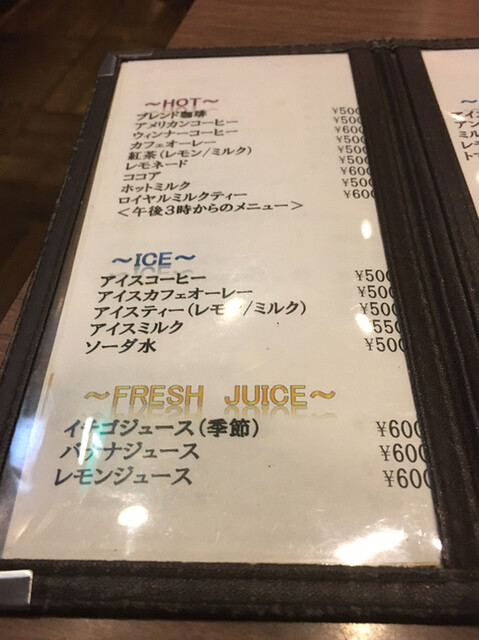 ～HOT～
ブレンド珈琲 ¥500
アメリカンコーヒー ¥500
ウィンナーコーヒー ¥600
カフェオーレー ¥500
紅茶(レモン/ミルク) ¥500
レモネード ¥500
ココア ¥600
ホットミルク ¥500
ロイヤルミルクティー ¥600
＜午後３時からのメニュー＞
～ICE～
アイスコーヒー ¥500
アイスカフェオーレー ¥500
アイスティー(レモン/ミルク) ¥500
アイスミルク 550
ソーダ水 ¥500
～FRESH JUICE～
イチゴジュース(季節) ¥600
バナナジュース ¥600
レモンジュース ¥600